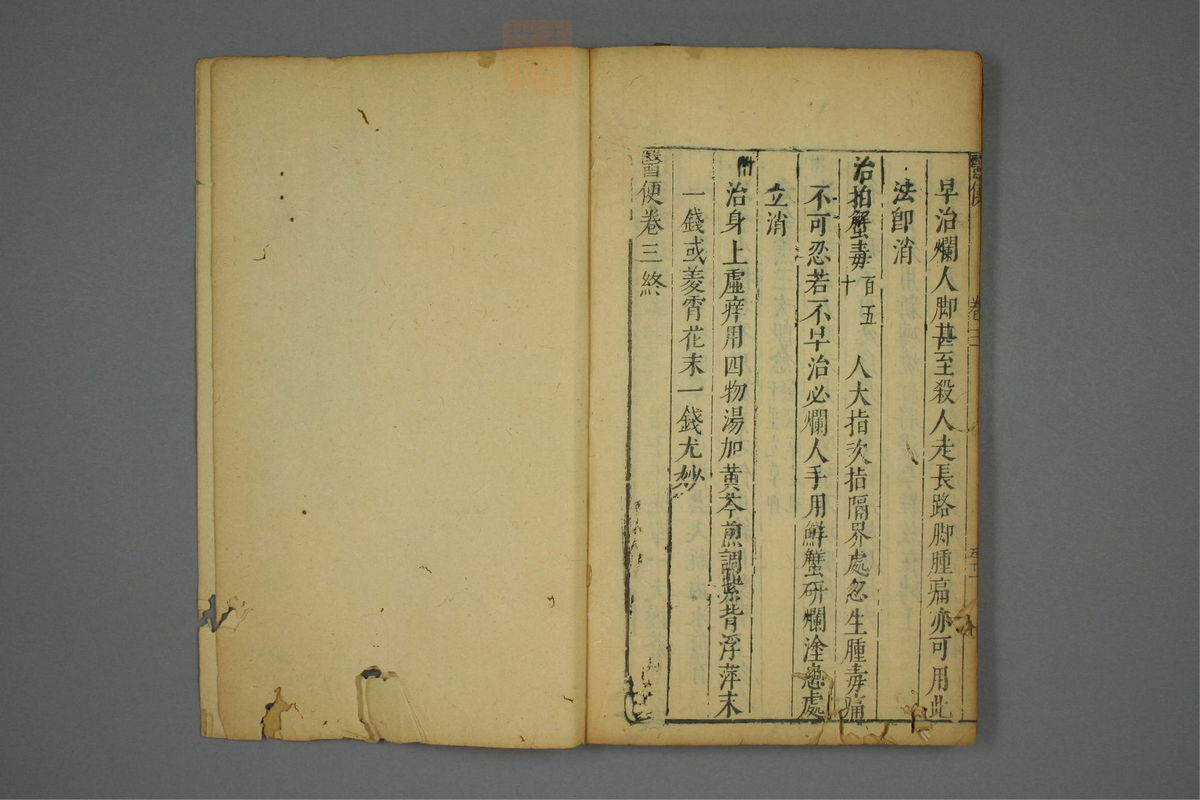 醫便
卷三
五十一
早治爛人脚甚至殺人走長路脚腫痛亦可用此
法卽消
治拍蟹毒 百五十 人大指次指隔界處忽生腫毒痛
不可忍若不早治必爛人手用鮮蟹研爛塗患處
立消
附
治身上虛痒用四物湯加黃芩煎調紫背浮萍末
一錢或菱霄花末一錢尤妙
醫便卷三終